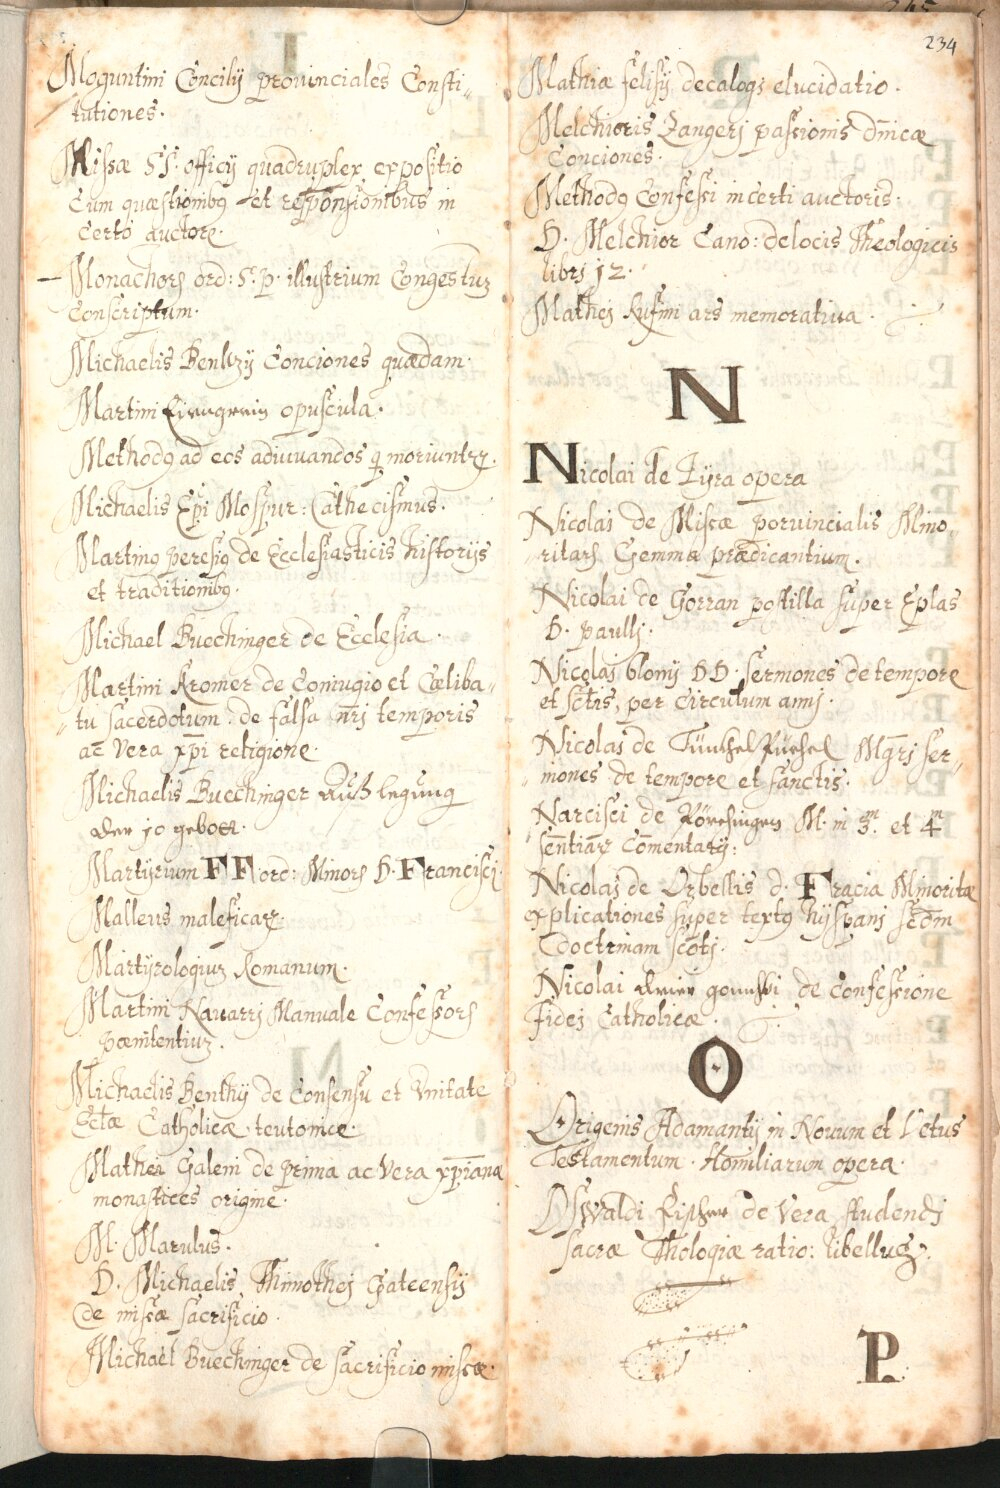 Moguntini Concilij prouinciales Consti„
tutiones.
Missæ SS: officij quadruplex expositio
Cum quæstionibꝰ et responsionibus in
certo auctore.
Monachorꝝ ord: S. P. illustrium Congestuꝫ
Conscriptum.
Michaelis Conciones quædam.
Martini Eisengrein opuscula.
Methodꝰ ad eos adiuuandos q̄ moriuntꝛ.
Michaelis Epi Mospur: Cathecismus.
Martinꝰ peresiꝰ de Ecclesiasticis historijs
et traditionibꝰ.
Michael Buechinger de Ecclesia.
Martini Kromer de Coniugio et Cœliba„
„tu sacerdotum. de falsa nr̄j temporis
ac vera xp̄i religione.
Michaelis Buechinger Auslegung
der 10 gebott.
Martyrium FF ord: Minorꝝ D. Franciscj.
Malleus maleficarꝝ.
Martyrologiuꝫ Romanum.
Martini Nauarrj Manuale Confessorꝝ
pœnitentiuꝫ.
Michaelis de Consensu et Vnitate
Catholicæ teutonice.
Mathei Galeni de prima ac vera xp̄iana
monastices origine.
M. Marulus.
D. Michaelis Thimothej Gateensij
de missæ sacrificio.
Michael Buechinger de sacrificio missæ.
234
Mathiæ felisij decalogi elucidatio.
Melchioris Zangerj passionis dn̄icæ
Conciones.
Methodꝰ Confessi incerti auctoris.
D. Melchior Cano: de locis Theologicis
librj 12.
Mathej Rufini ars memoratiua.
N
Nicolai de Lyra opera
Nicolai de Missæ poruincialis Mino„
ritarꝝ Gemma prædicantium.
Nicolai de Gorran postilla super Eplas
D. paullj.
Nicolaj blonij DD. sermones de tempore
et sctis, per circulum annj.
Nicolaj de Mgr̄j ser„
„mones de tempore et sanctis.
Narcisci de M. in 3.m et 4m
Sentiarꝝ Comentarij:
Nicolaj de Orbellis d. Fracia Minoritæ
explicationes super textꝰ hijspanj scdm
doctrinam scotj.
Nicolai de Confessione
fidej Catholicæ.
O
Origenis Adamantij in Nouum et Vetus
Testamentum. Homiliarum opera.
Oswaldi Fischer de vera studendj
sacræ Thologiæ ratio: libellus.
P.